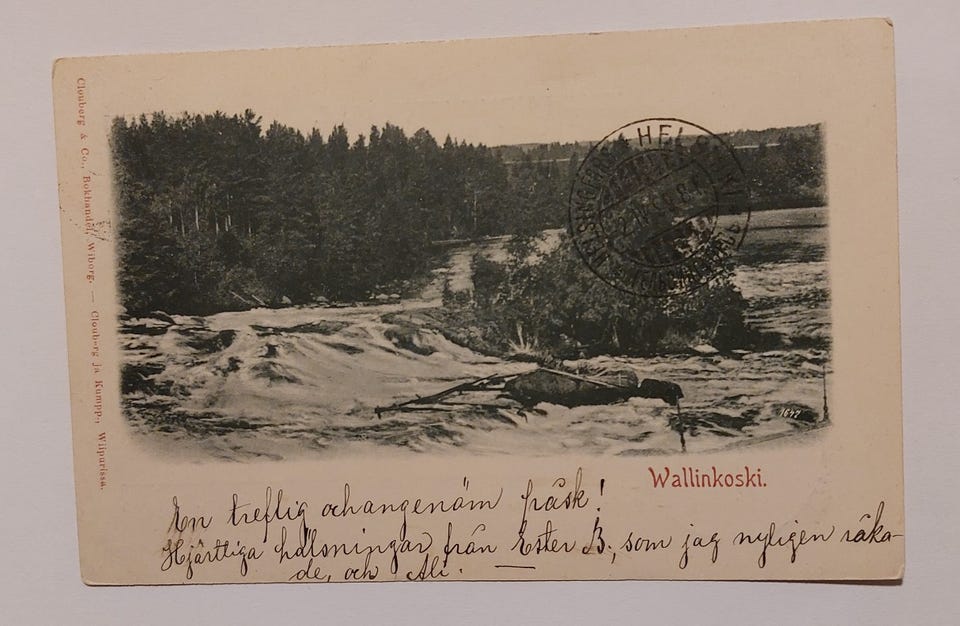 Clouberg & Co., Bokhandel, Wiborg. — Clouberg ja Kumpp., Wiipurissa.
HELSINKI
HELSINGFORS
1647
Wallinkoski.
En treflig och angenäm påsk!
Hjärtliga hälsningar från Ester B., som jag nyligen råka-
de, och Ali. —